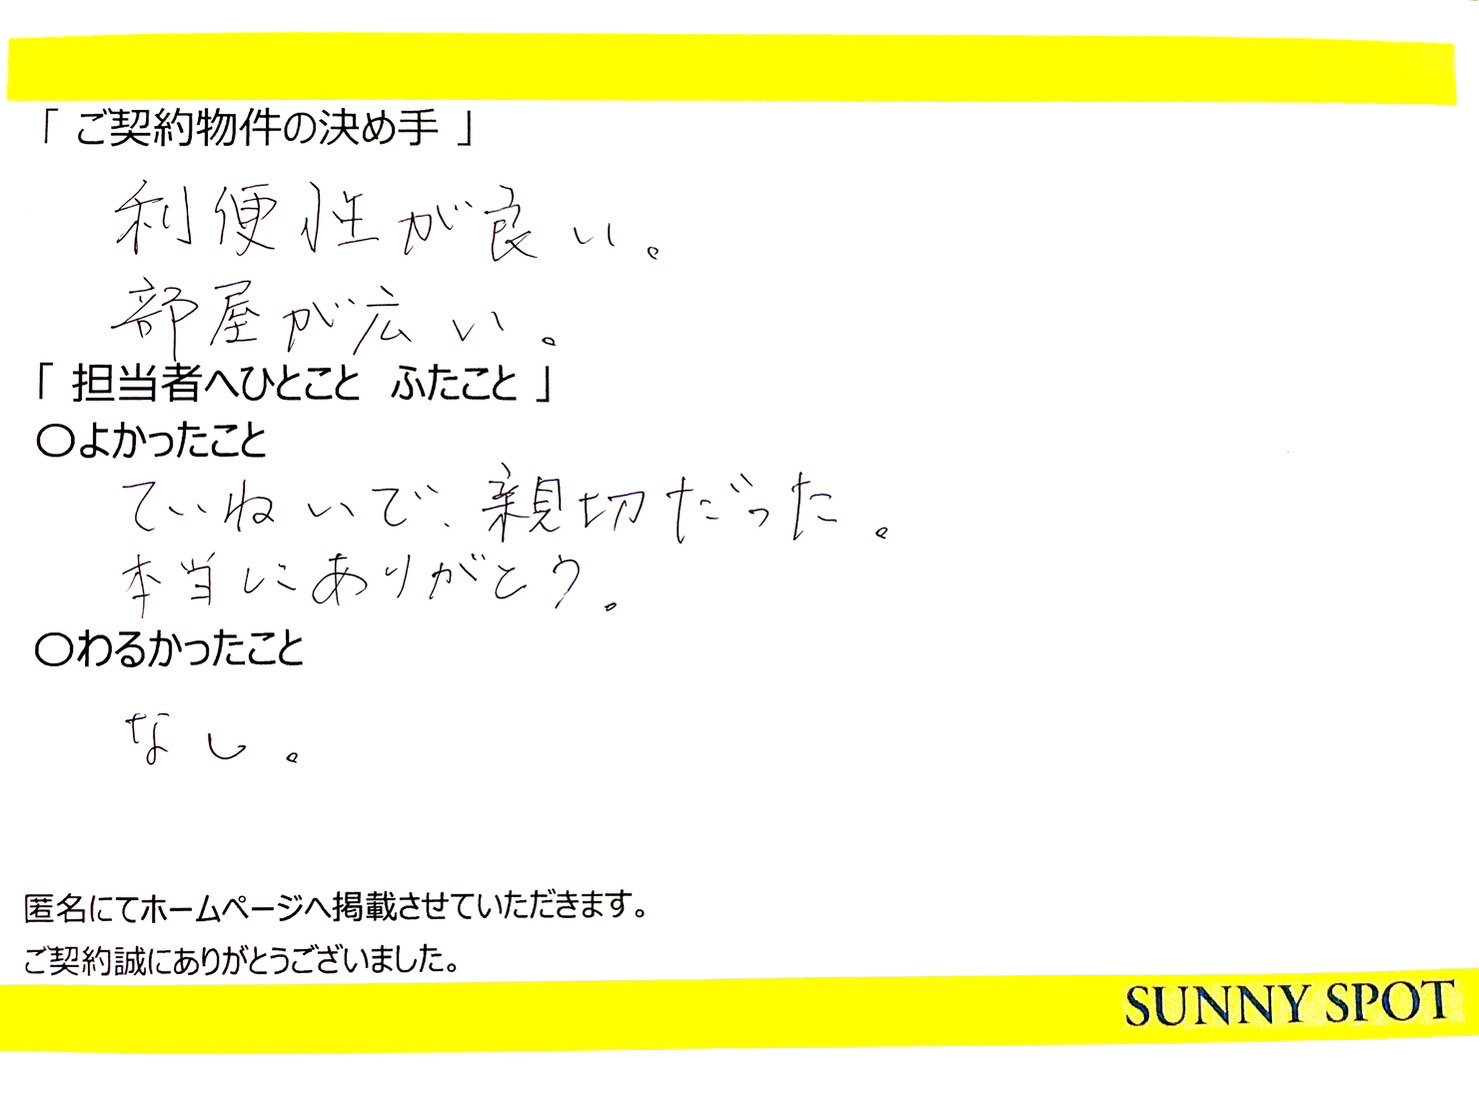 「 ご契約物件の決め手 」
利便性が良い。
部屋が広い。
「 担当者へひとこと　ふたこと 」
〇よかったこと
ていねいで、親切だった。
本当にありがとう。
〇わるかったこと
なし。
匿名にてホームページへ掲載させていただきます。
ご契約誠にありがとうございました。
SUNNY SPOT